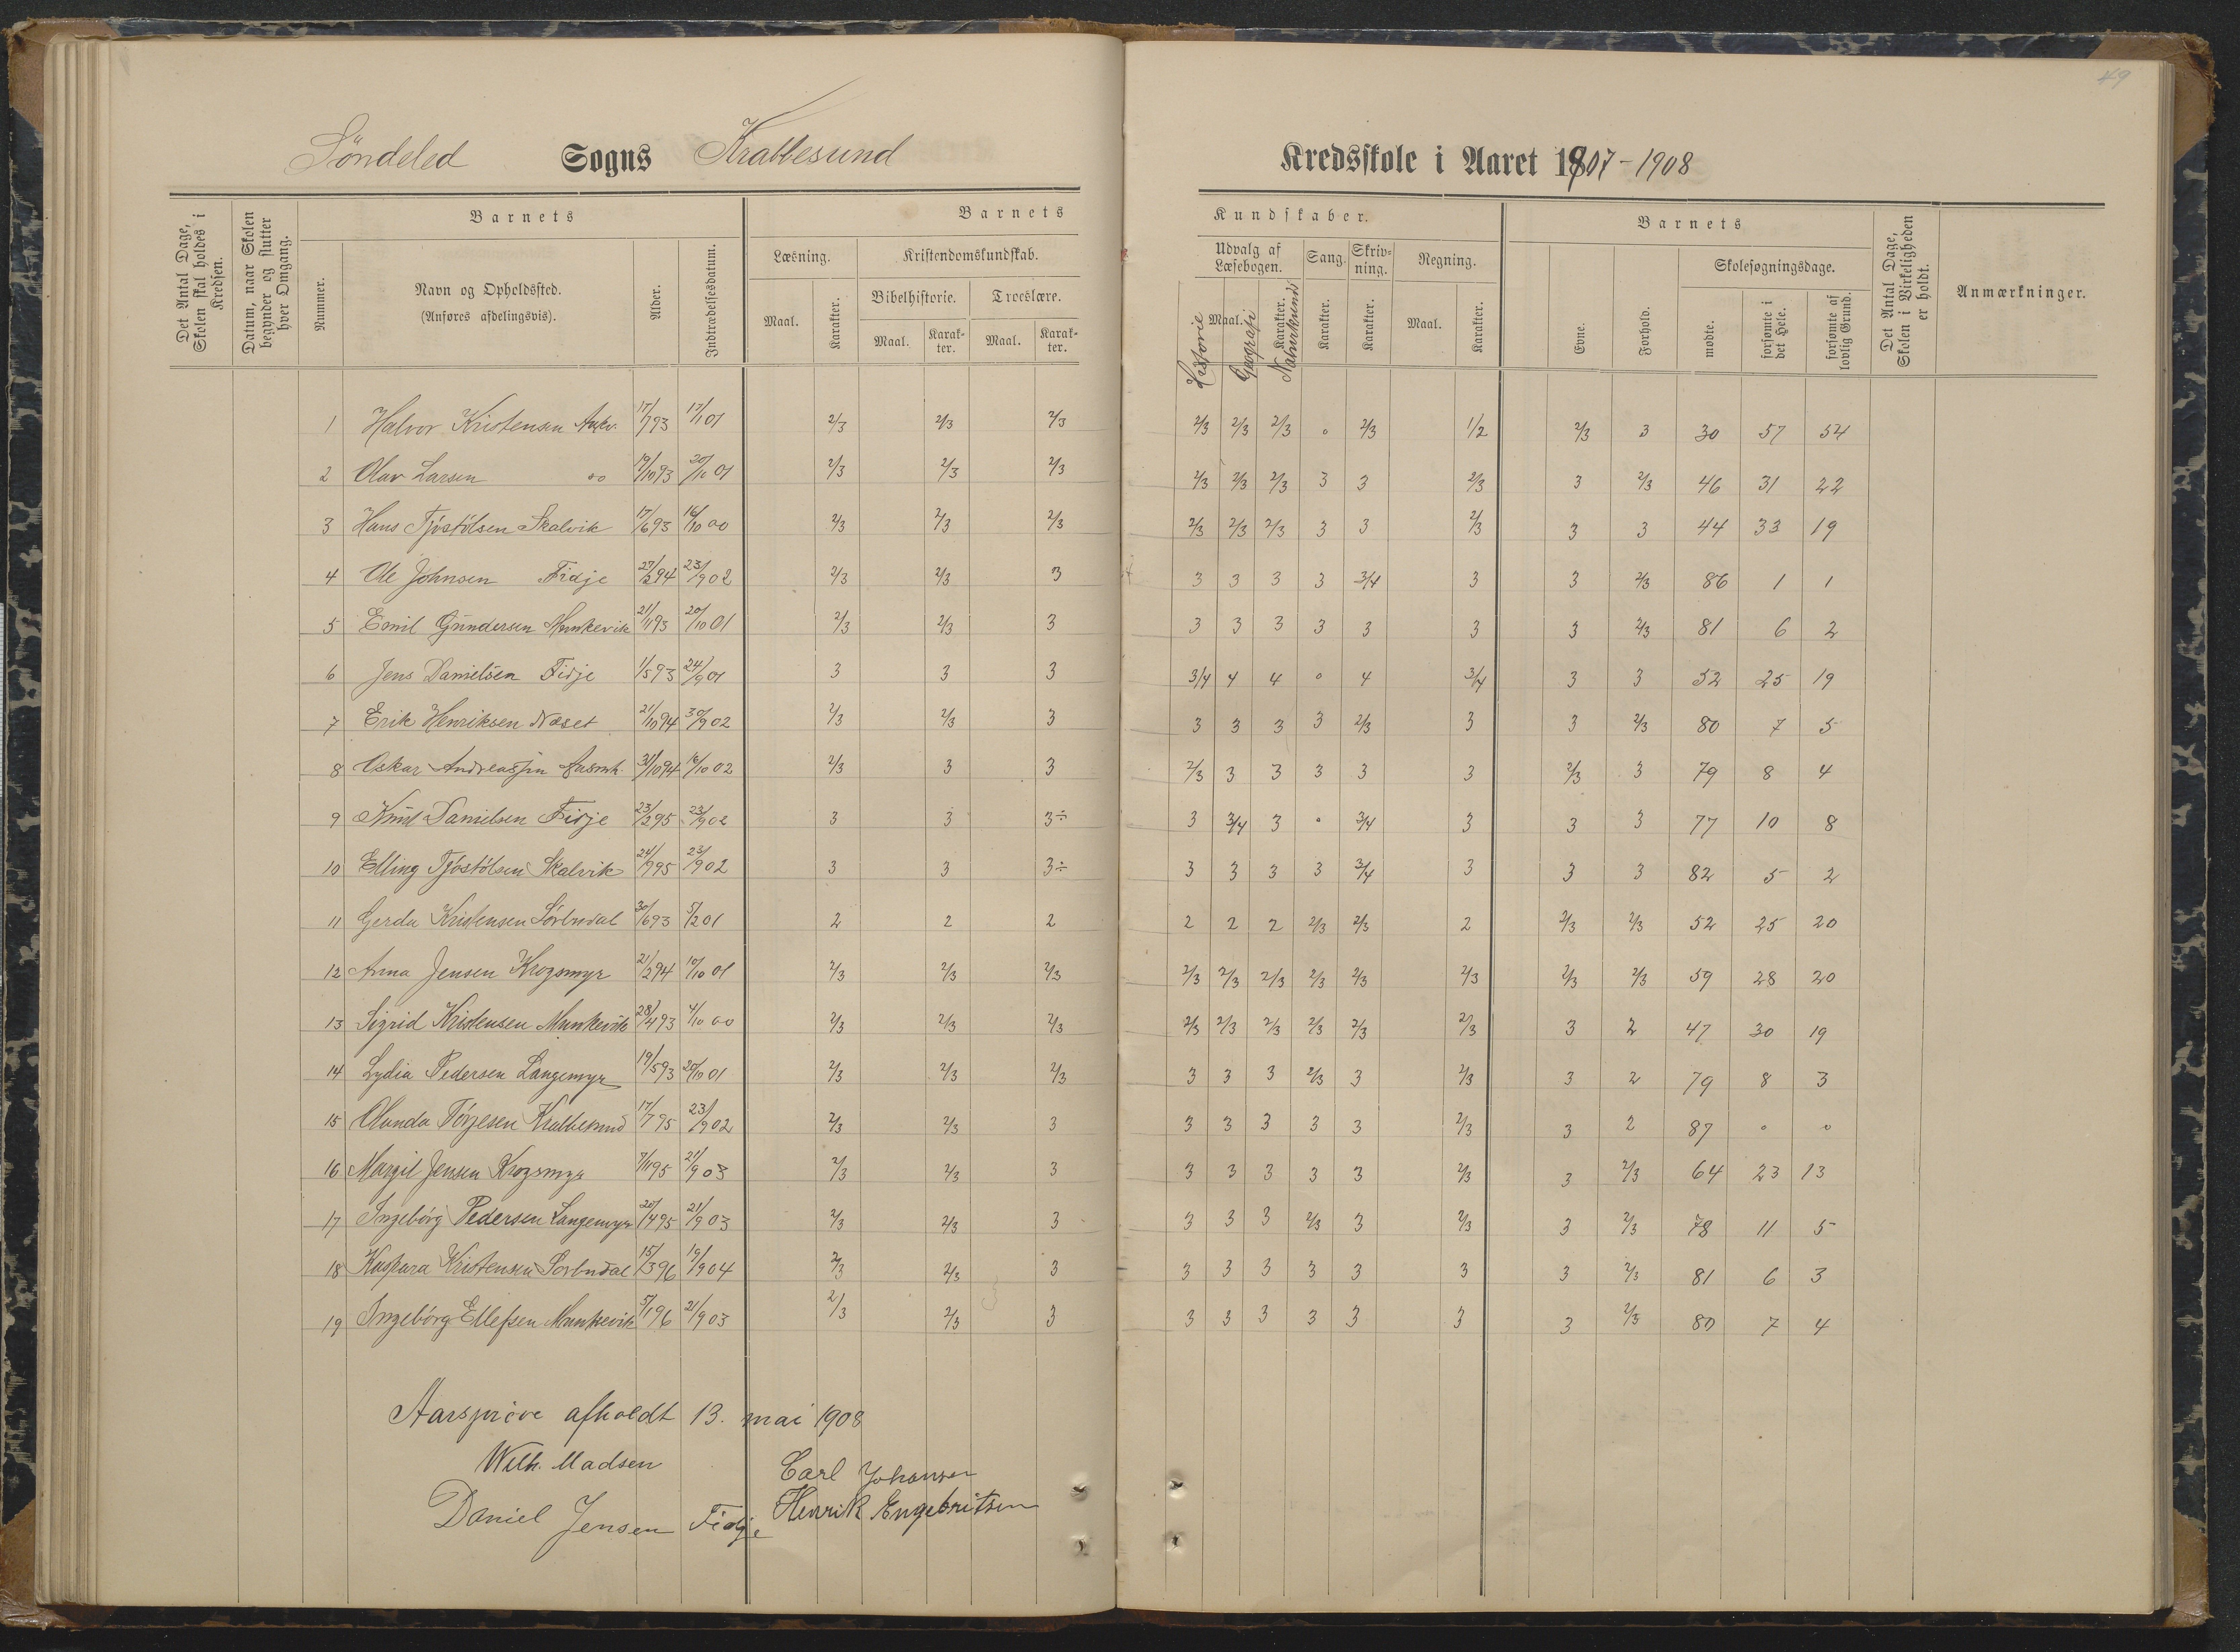 49
Söndeled Sogns Krabbesund Kredsskole i Aaret 1907-1908
Det Antal Dage, Skolen skal holdes i Kredsen.
Datum, naar Skolen begynder og slutter hver Omgang.
Barnets
Nummer.
Navn og Opholdssted.
(Anføres afdelingsvis).
Alder.
Indtrædelsesdatum.
Barnets Kundskaber.
Læsning.
Maal.
Karakter.
Kristendomskundskab.
Bibelhistorie.
Maal.
Karakter.
Troeslære.
Maal.
Karakter.
Udvalg af Læsebogen.
Maal.
Karakter.
Historie
Geografi
Naturkundsk
Sang.
Karakter.
Skrivning.
Karakter.
Regning.
Maal.
Karakter.
Barnets
Evne.
Forhold.
Skolesøgningsdage.
mødte.
forsømte i det Hele.
forsømte af lovlig Grund.
Det Antal Dage, Skolen i Virkeligheden er holdt.
Anmærkninger.
1 Halvor Kristensen 17/7 93 17/1 01 2/3 2/3 2/3 2/3 2/3 2/3 0 2/3 1/2 2/3 3 30 57 54
2 Olav Larsen 19/10 93 20/10 01 2/3 2/3 2/3 2/3 2/3 2/3 3 3 2/3 3 2/3 46 31 22
3 Hans Tjöstölsen Skalvik 17/6 93 16/10 00 2/3 2/3 2/3 2/3 2/3 2/3 3 3 2/3 3 3 44 33 19
4 Ole Johnsen Fidje 27/2 94 23/9 02 2/3 2/3 3 3 3 3 3 3/4 3 3 2/3 86 1 1
5 Emil Gundersen Munkevik 21/11 93 20/10 01 2/3 2/3 3 3 3 3 3 3 3 3 2/3 81 6 2
6 Jens Danielsen Fidje 1/5 93 24/9 01 3 3 3 3/4 4 4 0 4 3/4 3 3 52 25 19
7 Erik Henriksen Næset 21/10 94 30/9 02 2/3 2/3 3 3 3 3 3 2/3 3 3 2/3 80 7 5
8 Oskar Andreassen 31/10 94 16/10 02 2/3 3 3 2/3 3 3 3 3 3 2/3 3 79 8 4
9 Knut Danielsen Fidje 23/2 95 23/9 02 3 3 3÷ 3 3/4 3 0 3/4 3 3 3 77 10 8
10 Elling Tjöstölsen Skalvik 24/9 95 23/9 02 3 3 3÷ 3 3 3 3 3/4 3 3 3 82 5 2
11 Gerda Kristensen Sörbudal 30/6 93 5/2 01 2 2 2 2 2 2 2/3 2/3 2 2/3 2/3 52 25 20
12 Anna Jensen Krogsmyr 21/2 94 10/10 01 2/3 2/3 2/3 2/3 2/3 2/3 2/3 2/3 2/3 2/3 2/3 59 28 20
13 Sigrid Kristensen Munkevik 28/4 93 4/10 00 2/3 2/3 2/3 2/3 2/3 2/3 2/3 2/3 2/3 3 2 47 30 19
14 Lydia Pedersen Langemyr 19/5 93 20/10 01 2/3 2/3 2/3 3 3 3 2/3 3 2/3 3 2 79 8 3
15 Olunda Törjesen Krabbesund 17/7 95 23/9 02 2/3 2/3 3 3 3 3 3 3 2/3 3 2 87 0 0
16 Margit Jensen Krogsmyr 7/11 95 21/9 03 2/3 2/3 3 3 3 3 3 3 2/3 3 2/3 64 23 13
17 Ingebórg Pedersen Langemyr 20/4 95 21/9 03 2/3 2/3 3 3 3 3 2/3 3 2/3 3 2/3 78 11 5
18 Kaspara Kristensen Sorbudal 15/3 96 19/9 04 2/3 2/3 3 3 3 3 3 3 3 3 2/3 81 6 3
19 Ingebórg Ellefsen Munkevik 5/1 96 21/9 03 2/3 2/3 3 3 3 3 3 3 3 3 2/3 80 7 4
Aarspröve afholdt 13. mai 1908
Wilh. Madsen Carl Johansen
Daniel Jensen Fidje Henrik Engebritsen